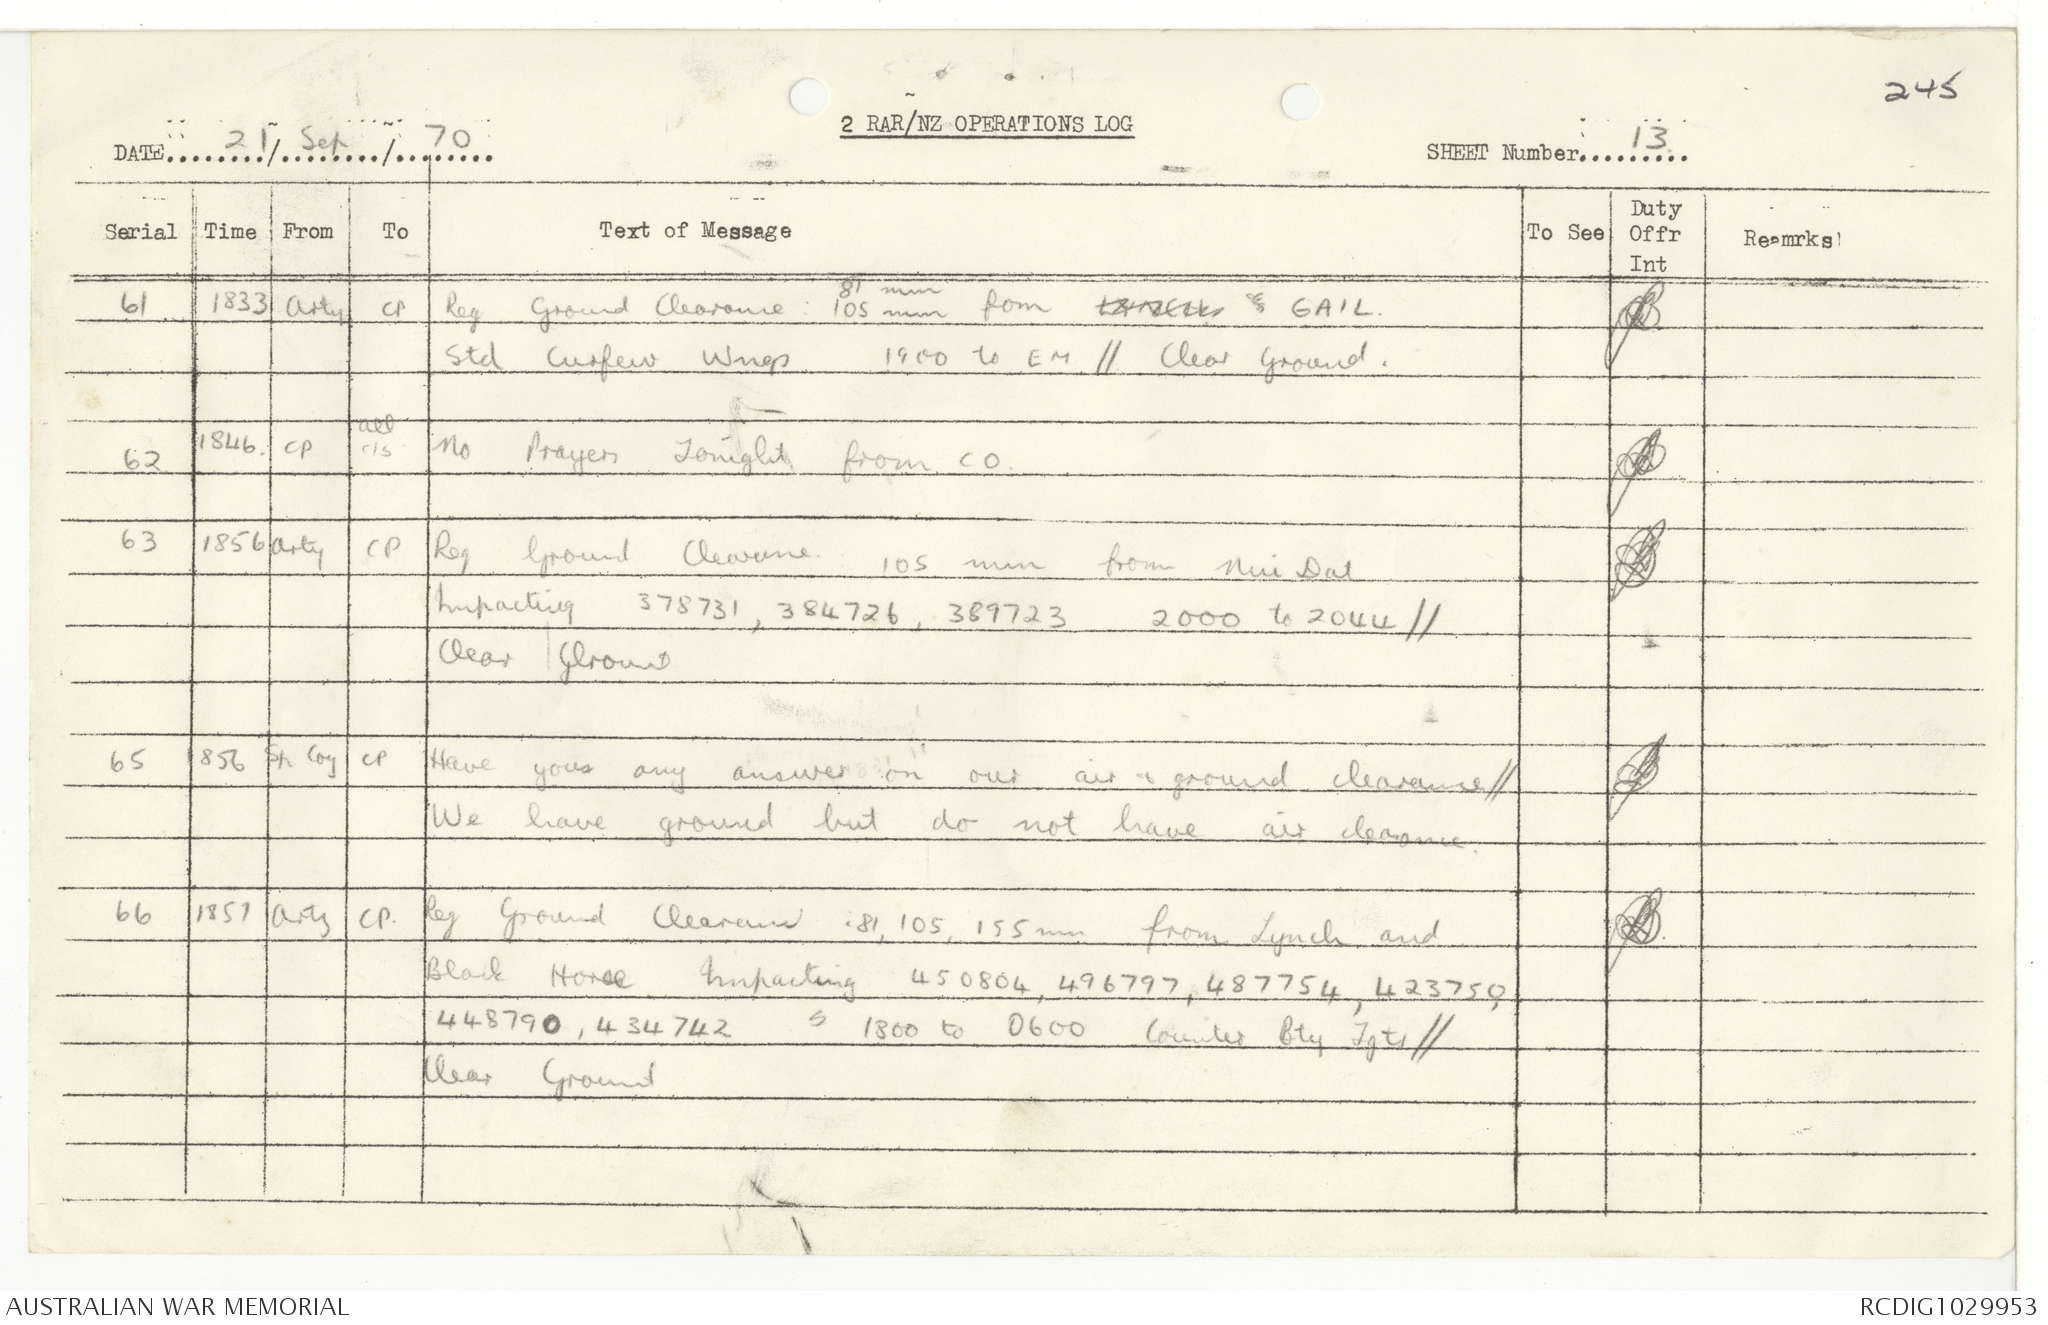 245
2 RAR/NZ OPERATIONS LOG
DATE 21/Sep/70
SHEET Number 13
Serial Time From To Text of Message To See Duty Offr Int Remrks
61 1833 Arty CP Req Ground Clearance: 81 mm 105 mm from & GAIL.
Std Curfew Wngs 1900 to EM // Clear Ground.
62 1846. CP all c/s No Prayers Tonight from CO.
63 1856 Arty CP Req Ground Clearance. 105 mm from Nui Dat
Impacting 378731, 384726, 389723 2000 to 2044 //
Clear Ground
65 1856 Sp Coy CP Have you any answer on our air & ground clearance //
We have ground but do not have air clearance.
66 1857 Arty CP. Req Ground Clearance 81, 105, 155mm from Lynch and
Black Horse Impacting 450804, 496797, 487754, 423750,
448790, 434742 1800 to 0600 Counter Bty Tgts //
Clear Ground
AUSTRALIAN WAR MEMORIAL
RCDIG1029953